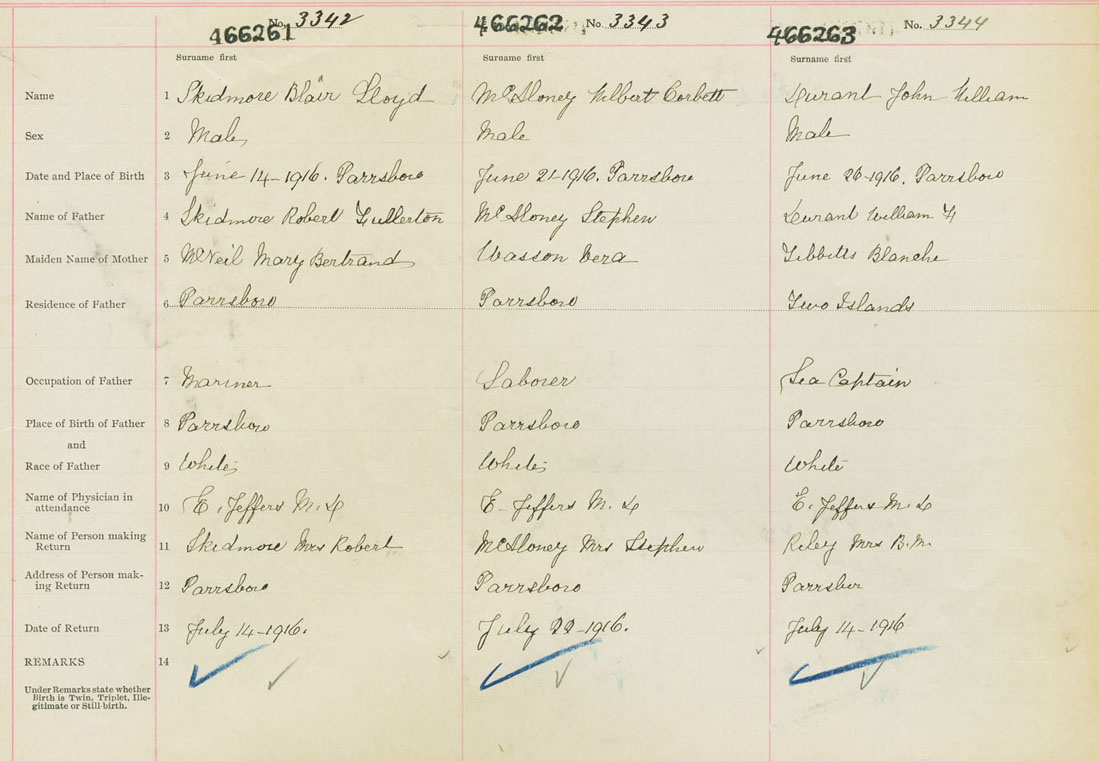 No. 3342
466261
466262 No. 3343
No. 3344
466263
Surname first Surname first Surname first
Name 1 Skidmore Blair Lloyd McAloney Wilbert Corbett Durant John William
Sex 2 Male Male Male
Date and Place of Birth 3 June 14-1916. Parrsboro June 21-1916. Parrsboro June 26-1916. Parrsboro
Name of Father 4 Skidmore Robert Fullerton McAloney Stephen Durant William F
Maiden Name of Mother 5 McNeil Mary Bertrand Wasson Vera Tibbetts Blanche
Residence of Father 6 Parrsboro Parrsboro Two Islands
Occupation of Father 7 Mariner Laborer Sea Captain
Place of Birth of Father 8 Parrsboro Parrsboro Parrsboro
and
Race of Father 9 White White White
Name of Physician in
attendance 10 E. Jeffers M. D E- Jeffers M. D E. Jeffers M. D
Name of Person making
Return 11 Skidmore Mrs Robert McAloney Mrs Stephen Riley Mrs B. M.
Address of Person mak-
ing Return 12 Parrsboro Parrsboro Parrsbor
Date of Return 13 July 14-1916. July 22-1916. July 14-1916
REMARKS 14
Under Remarks state whether
Birth is Twin, Triplet, Ille-
gitimate or Still-birth.